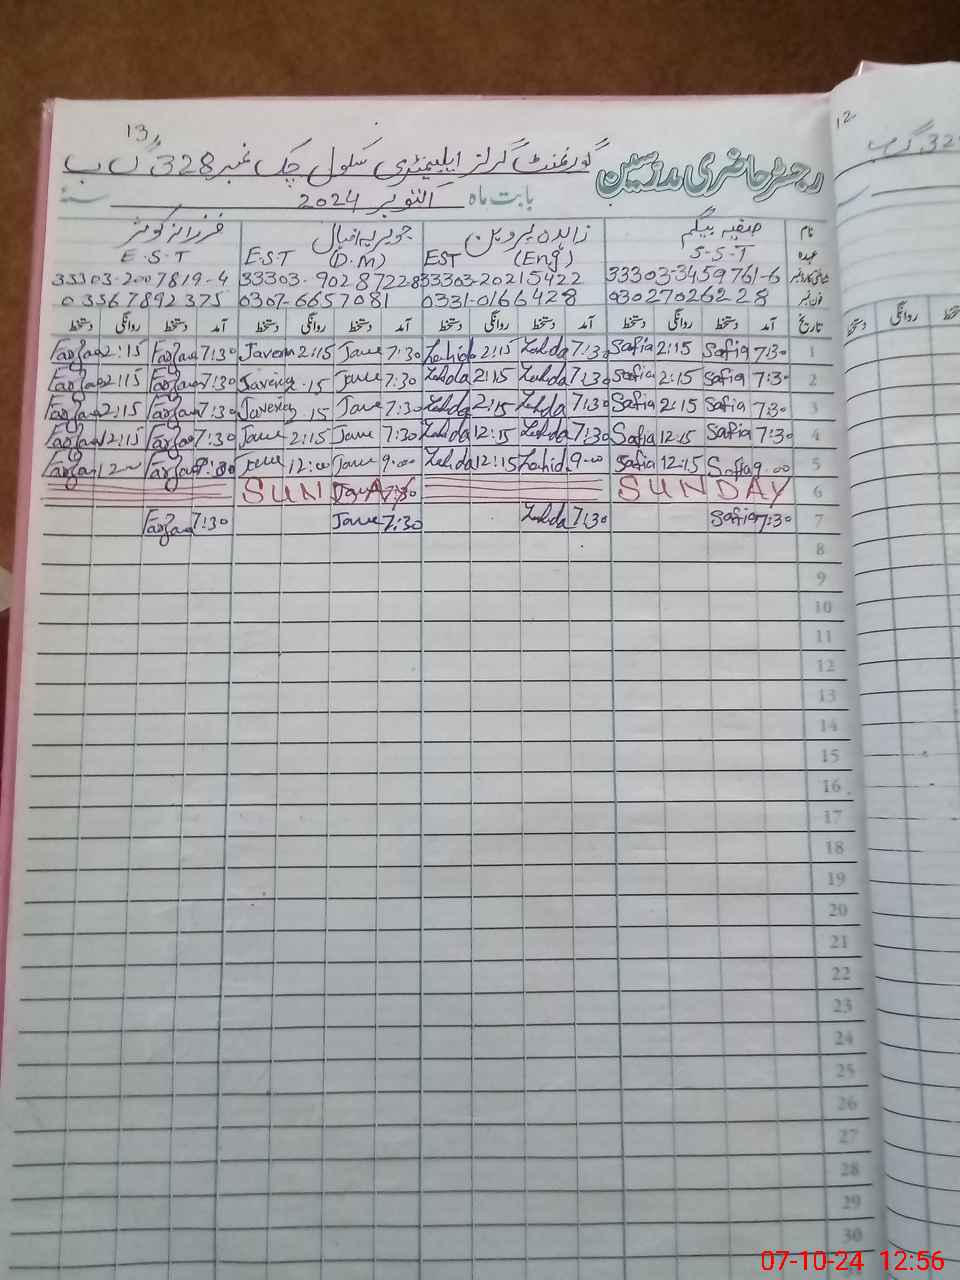 13
12
گورنمنٹ گرلز ایلیمنٹری سکول چک نمبر 328 گ ب
رجسٹر حاضری مدرسین
بابت ماہ اکتوبر 2024 سنہ
نام صفیہ بیگم زاہدہ پروین جویریہ اقبال فرزانہ کوثر
عہدہ S-S-T (Eng) EST (D.M) E.S.T E.S.T
33303-3459761-6 33303-20215422 33303-9028722-8 33303-2007819-4
03027026228 0331-0166428 0307-6657081 03567892375
تاریخ آمد دستخط روانگی دستخط آمد دستخط روانگی دستخط آمد دستخط روانگی دستخط آمد دستخط روانگی دستخط
1 7:30 Safia 2:15 Safia 7:30 Zahda 2:15 Zahida 7:30 Jave 2:15 Javeria 7:30 Farzana 2:15 Farzana
2 7:30 Safia 2:15 Safia 7:30 Zahda 2:15 Zahda 7:30 Jave 2:15 Javeria 7:30 Farzana 2:15 Farzana
3 7:30 Safia 2:15 Safia 7:30 Zahda 2:15 Zahda 7:30 Jave 2:15 Javeria 7:30 Farzana 2:15 Farzana
4 7:30 Safia 12:15 Safia 7:30 Zahda 12:15 Zahda 7:30 Jave 2:15 Jave 7:30 Farzana 12:15 Farzana
5 9:00 Safia 12:15 Safia 9:00 Zahida 12:15 Zahda 9:00 Jave 12:00 Jave Farzana Farzana
6 SUNDAY SUNDAY
7 7:30 Safia 7:30 Zahda 7:30 Jave 7:30 Farzana
8
9
10
11
12
13
14
15
16
17
18
19
20
21
22
23
24
25
26
27
28
29
30
07-10-24 12:56